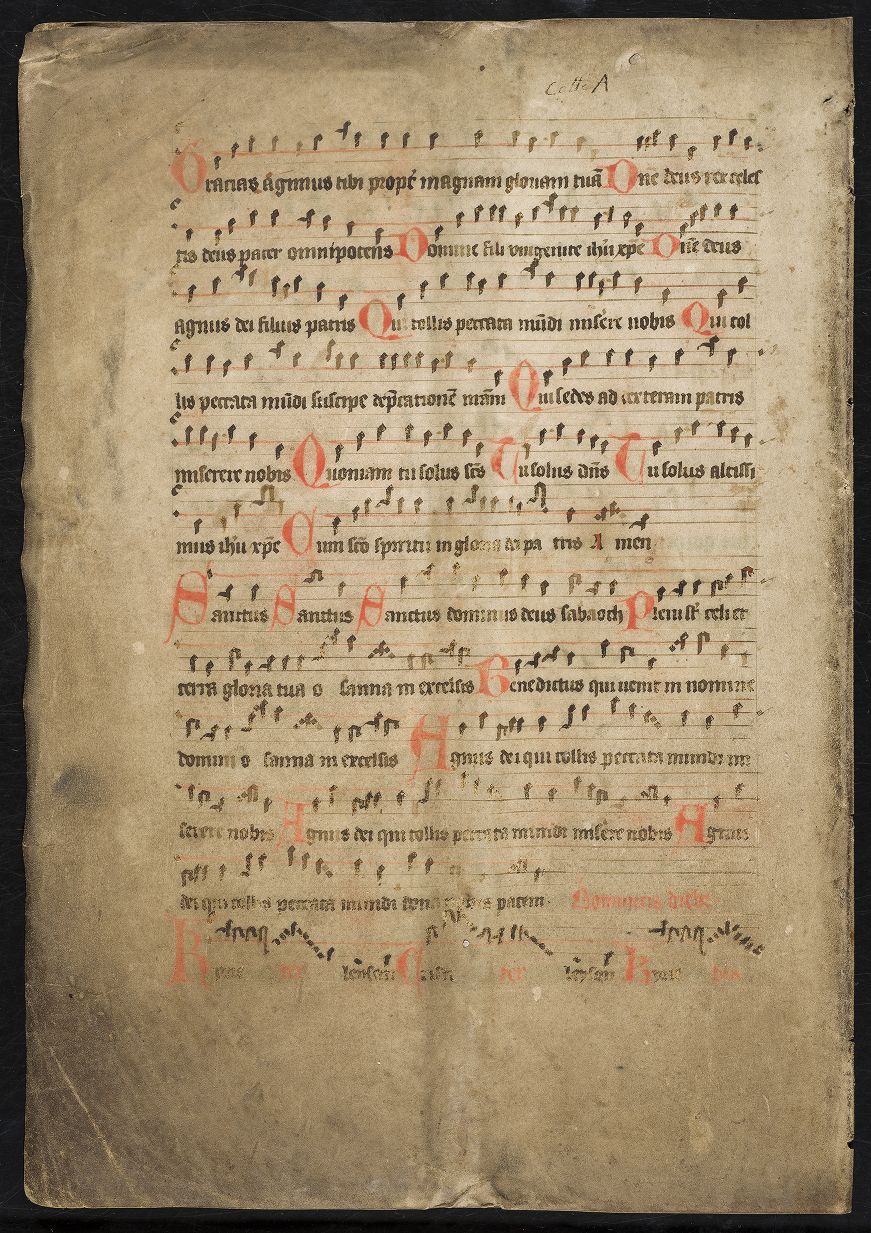 Collo A
Gracias agimus tibi propt magnam gloriam tuā Dne deus rex celes
tis deus pater omnipotens Domine fili vnigenite ihū xpe Dn̄e deus
agnus dei filius patris Qui tollis peccata mūdi misere nobis Qui tol
lis peccata mūdi suscipe dep̄cationē nr̄am Qui sedes ad dexteram patris
miserere nobis Quoniam tu solus scs̄ Tu solus dn̄s Tu solus altissi
mus ihū xpe Cum scō spiritu in gloria dei pa tris A men
Sanctus Sanctus Sanctus dominus deus sabaoth Pleni st̄ celi et
terra gloria tua o sanna in excelsis Benedictus qui uenit in nomine
domini o sanna in excelsis Agnus dei qui tollis peccata mundi mi
serere nobis Agnus dei qui tollis peccata mundi misere nobis Agnus
dei qui tollis peccata mundi dona nobis pacem
Kyrie ter leyson Criste ter leyson Kyrie